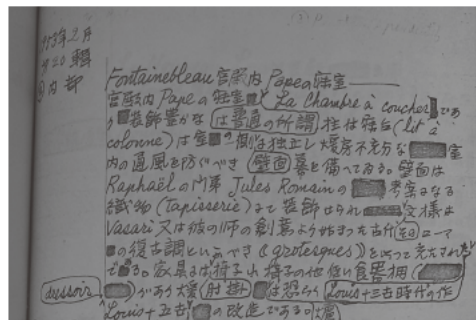 1953年2月
920 輯
内部
Fontainebleau 宮殿内 Popeの寝室
宮殿内 Pape の寝室 (La Chambre à coucher)であ
り装飾豊かな は普通の所謂 柱付寝台 (lit à
colonne) は室の 側は独立し煖房不充分な 室
内の通風を防ぐべき 壁面 幕を備へてゐる。壁面は
Raphaël の門弟 Jules Romain の 考案になる
織物 (tapisserie) にて装飾せられ 文様は
Vasari 又は彼の師の創意より始まった古代 ローマ
の復古調といふべき (grotesques) を以って充たされ
である。家具には椅子 椅子の他低い食器棚
dressoir があり大煖 肘掛 は恐らく Louis十三世時代の作
Louis十五世 の改造である。